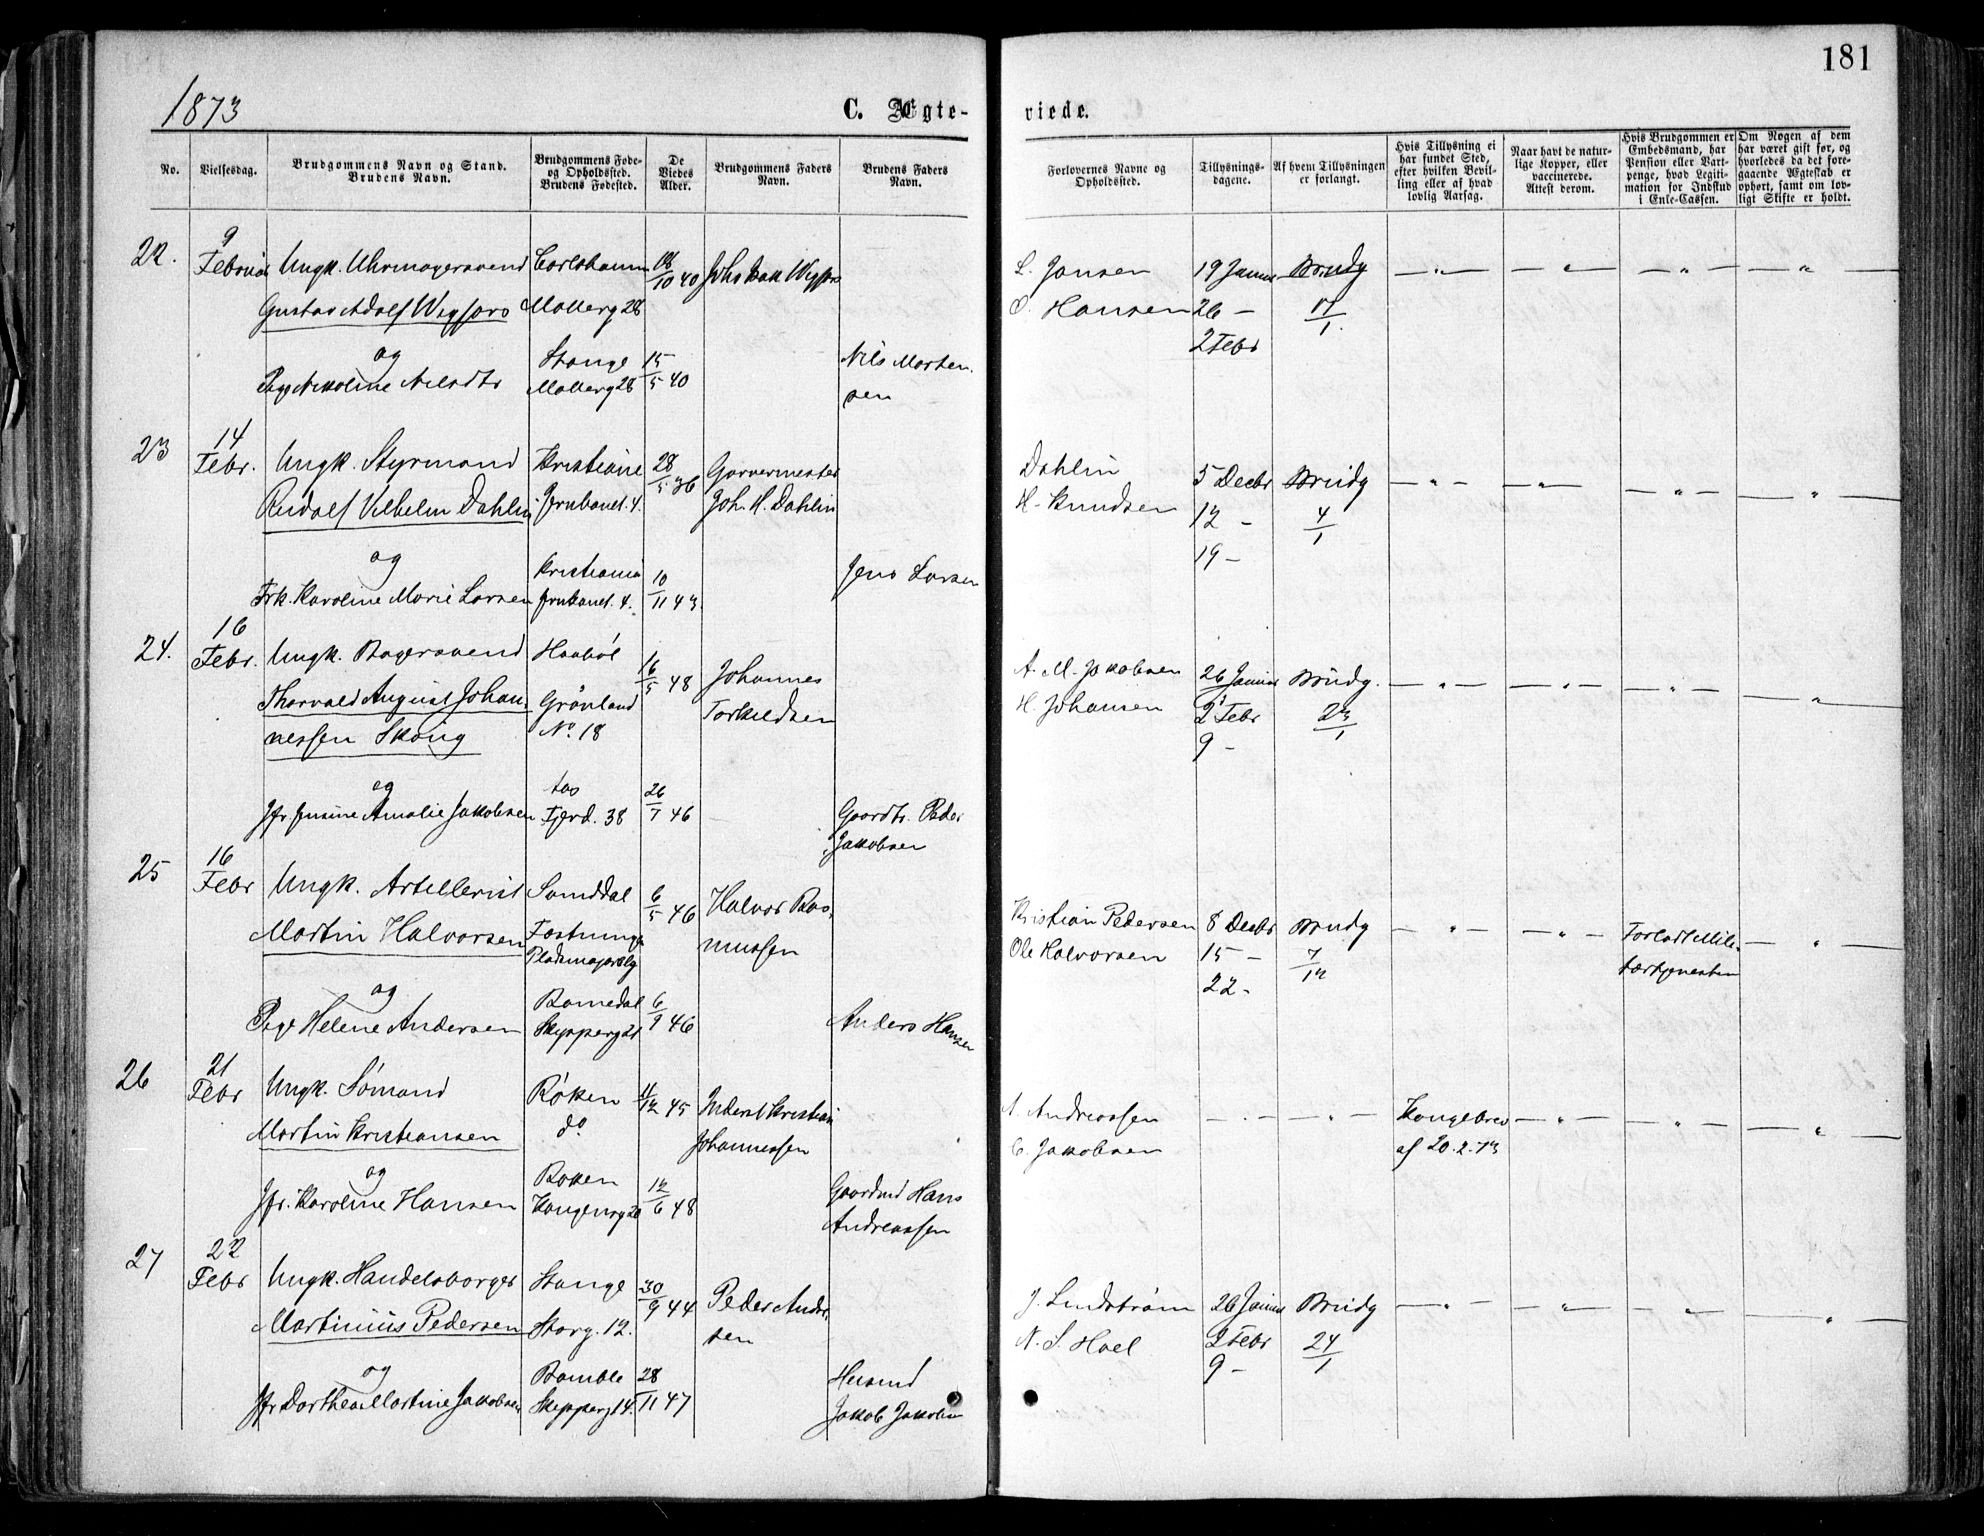 181
1873
C. Ægte-
viede.
No.
Vielsesdag.
Brudgommens Navn og Stand.
Brudens Navn.
Brudgommens Føde-
og Opholdssted.
Brudens Fødested.
De
Viedes
Alder.
Brudgommens Faders
Navn.
Brudens Faders
Navn.
Forlovernes Navne og
Opholdssted.
Tillysnings-
dagene.
Af hvem Tillysningen
er forlangt.
Hvis Tillysning ei
har fundet Sted,
efter hvilken Bevil-
ling eller af hvad
lovlig Aarsag.
Naar havt de natur-
lige Kopper, eller
vaccinerede.
Attest derom.
Hvis Brudgommen er
Embedsmand, har
Pension eller Vart-
penge, hvad Legiti-
mation for Indskud
i Enke-Cassen.
Om Nogen af dem
har været gift før, og
hvorledes da det fore-
gaaende Ægteskab er
ophørt, samt om lov-
ligt Skifte er holdt.
22.
9
Februar
Ungk. Uhrmagersvend
Gustav Adolf
og
Pige Nikoline Nilsdtr
Carlshamn
Møllerg 28
Stange
Møllerg 28
10 40
15/5 40
Nils Morten-
sen
L. Jansen
O. Hansen
19 Januar
26 –
2 Febr
Brudg
17/1.
23
14
Febr.
Ungk. Styrmand
Rudolf Vilhelm Dahlin
og
Frk. Karoline Marie Larsen
Kristiania
Jrnbanet. 4.
Kristiania
Jrnbanet. 4.
28/5 36
10/11 43
Garvermester
Joh. H. Dahlin
Jens Larsen
Dahlin
H. Knudsen
5 Decbr
12 –
19 –
Brudg
4/1
24.
16
Febr.
Ungk. Bagersvend
Thorvald August Johan-
nessen Skoug
og
Jfr Amalie Jakobsen
Haabøl
Grønland
No. 18
Aas
Fjerd. 38
16/5 48
26/7 46
Johannes
Torkildsen
Gaardbr. Peder
Jakobsen
A. M. Jakobsen
H. Johansen
26 Januar
2 Febr
9 –
Brudg.
23/1
25
16
Febr
Ungk. Artillerist
Martin Halvorsen
og
Pige Helene Andersen
Fæstningen
Romedal
Skipperg 21
6/5 46
6/9 46
Halvor Ras-
mussen
Anders Hansen
Kristian Pedersen
Ole Halvorsen
8 Decbr
15 –
22 –
Brudg
7/12
Forladt Mili-
tærtjenesten
26
21
Febr
Ungk. Sømand
Martin Kristiansen
og
Jfr. Karoline Hansen
Røken
do
Røken
Kongensg 20
11/12 45
12/6 48
Inderst Kristian
Johannessen
Gaardmd Hans
Andreassen
A. Andreassen
C. Jakobsen
Kongebrev
af 20.2.73
27
22
Febr
Ungk. Handelsborger
Martinius Pedersen
og
Jfr Dorthea Martine Jakobsen
Stange
Storg. 12.
Bamble
Skipperg 14.
30/9 44
28/11 47
Peder Ander-
sen
Husmd
Jakob Jakobsen
J. Lindstrøm
N. S. Hoel
26 Januar
2 Febr
9 –
Brudg
24/1